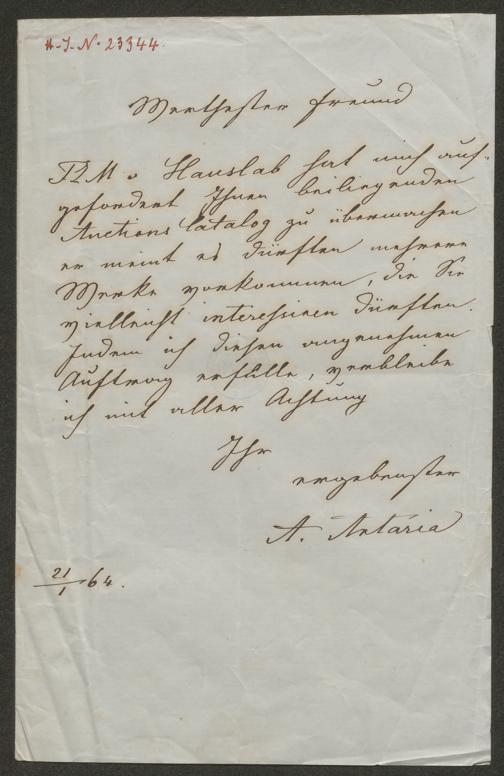 H.I.N. 23344.
Werthester Freund
FZM v Hauslab hat mich auf-
gefordert Ihnen beiliegenden
Auctions Catalog zu übermachen
er meint es dürften mehrere
Werke vorkommen, die Sie
vielleicht interessiren dürften.
Indem ich diesen angenehmen
Auftrag erfülle, verbleibe
ich mit aller Achtung
Ihr
ergebenster
A. Artaria
21/1 64.